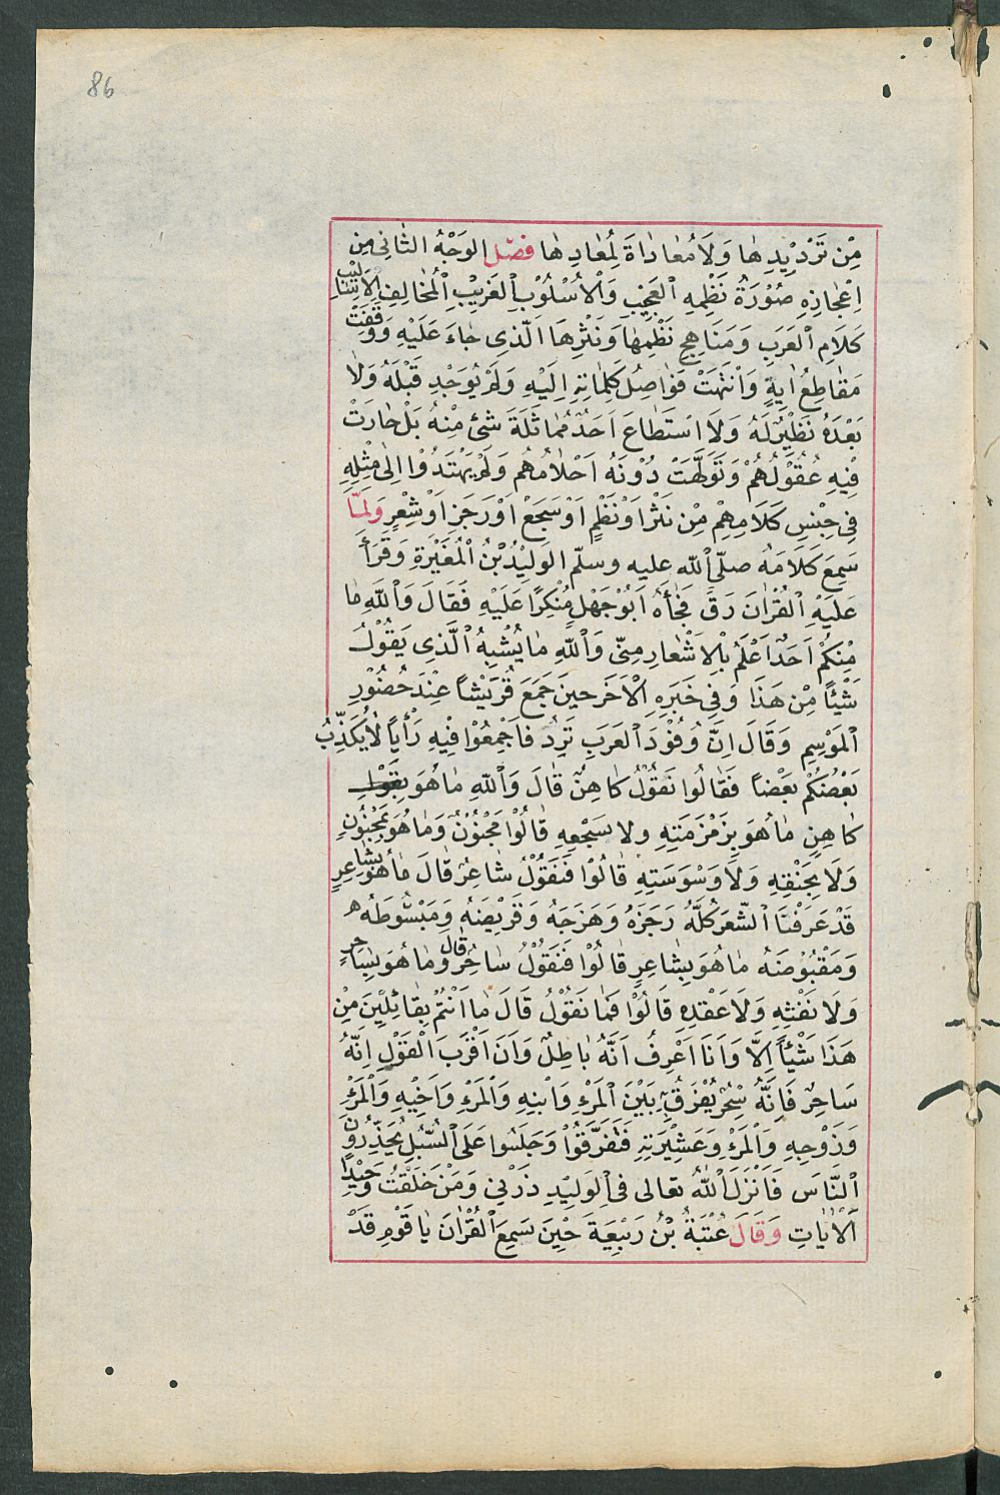 86
مِنْ تَرْدِيْدِهَا وَلَا مُعَادَاةَ لِمُعَادِهَا فصل الوَجْهُ الثَّانِى مِن
اِعْجَازِهِ صُوْرَةُ نَظْمِهِ الْعَجِيْبِ وَالْاُسْلُوْبِ الْغَرِيْبِ الْمُخَالِفِ لِاَسَالِيْبِ
كَلَامِ الْعَرَبِ وَمَنَاهِجِ نَظْمِهَا وَنَثْرِهَا الَّذِى جَاءَ عَلَيْهِ وَوَقَفَتْ
مَقَاطِعُ اٰيِهِ وَانْتَهَتْ فَوَاصِلُ كَلِمَاتِهِ اِلَيْهِ وَلَمْ يُوْجَدْ قَبْلَهُ وَلَا
بَعْدَهُ نَظِيْرٌ لَهُ وَلَا اسْتَطَاعَ اَحَدٌ مُمَاثَلَةَ شَئْ مِنْهُ بَلْ حَارَتْ
فِيْهِ عُقُوْلُهُمْ وَتَوَلَّهَتْ دُوْنَهُ اَحْلَامُهُمْ وَلَمْ يَهْتَدُوْا اِلٰى مِثْلِهِ
فِى جِنْسِ كَلَامِهِمْ مِنْ نَثْرٍ اَوْ نَظْمٍ اَوْ سَجَعٍ اَوْ رَجَزٍ اَوْ شِعْرٍ وَلَمَّا
سَمِعَ كَلَامَهُ صلّى الله عليه وسلّم الوَلِيْدُ بْنُ الْمُغَيْرَةِ وَقَرَأَ
عَلَيْهِ الْقُرْاٰنَ رَقَّ فَجَاءَهُ اَبُوْ جَهْلٍ مُنْكِرًا عَلَيْهِ فَقَالَ وَاللّٰهِ مَا
مِنْكُمْ اَحَدٌ اَعْلَمُ بِالْاَشْعَارِ مِنِّى وَاللّٰهِ مَا يُشْبِهُ الَّذِى يَقُوْلُ
شَيْئًا مِنْ هَذَا وَفِى خَبَرِهِ الْاٰخَرِ حينَ جَمَعَ قُرَيْشًا عِنْدَ حُضُوْرِ
الْمَوْسِمِ وَقَالَ اِنَّ وُفُوْدَ الْعَرَبِ تَرِدُ فَاَجْمِعُوْا فِيْهِ رَأْيًا لَا يُكَذِّبُ
بَعْضُكُمْ بَعْضًا فَقَالُوا نَقُوْلُ كَاهِنٌ قَالَ وَاللّٰهِ مَا هُوَ بِقَوْلِ
كَاهِنٍ مَا هُوَ بِزَمْزَمَتِهِ ولا سَجْعِهِ قَالُوْا مَجْنُوْنٌ وَمَا هُوَ بِمَجْنُوْنٍ
وَلَا بِخَنْقِهِ وَلَا وَسْوَسَتِهِ قَالُوْا فَنَقُوْلُ شَاعِرٌ قَالَ مَا هُوَ بِشَاعِرٍ
قَدْ عَرَفْنَا الشِّعْرَ كُلَّهُ رَجَزَهُ وَهَزَجَهُ وَقَرِيْضَهُ وَمَبْسُوْطَهُ
وَمَقْبُوْضَهُ مَا هُوَ بِشَاعِرٍ قَالُوْا فَنَقُوْلُ سَاحِرٌ قَالَ وَمَا هُوَ بِسَاحِرٍ
وَلَا نَفْثِهِ وَلَا عَقْدِهِ قَالُوْا فَمَا نَقُوْلُ قَالَ مَا اَنْتُمْ بِقَائِلِيْنَ مِنْ
هَذَا شَيْئًا اِلَّا وَاَنَا اَعْرِفُ اَنَّهُ بَاطِلٌ وَاَنَّ اَقْرَبَ الْقَوْلِ اِنَّهُ
سَاحِرٌ فَاِنَّهُ سِحْرٌ يُفَرِّقُ بَيْنَ الْمَرْءِ وَابْنِهِ وَالْمَرْءِ وَاَخِيْهِ وَالْمَرْءِ
وَزَوْجِهِ وَالْمَرْءِ وَعَشِيْرَتِهِ فَتَفَرَّقُوْا وَجَلَسُوا عَلَى السُّبُلِ يُحَذِّرُوْنَ
النَّاسَ فَاَنْزَلَ اللّٰهُ تعالى فى الْوَلِيْدِ ذَرْنِى وَمَنْ خَلَقْتُ وَحِيْدًا
الْاٰيَاتِ وَقَالَ عُتْبَةُ بْنُ رَبِيْعَةَ حِيْنَ سَمِعَ الْقُرْاٰنَ يَا قَوْمِ قَدْ